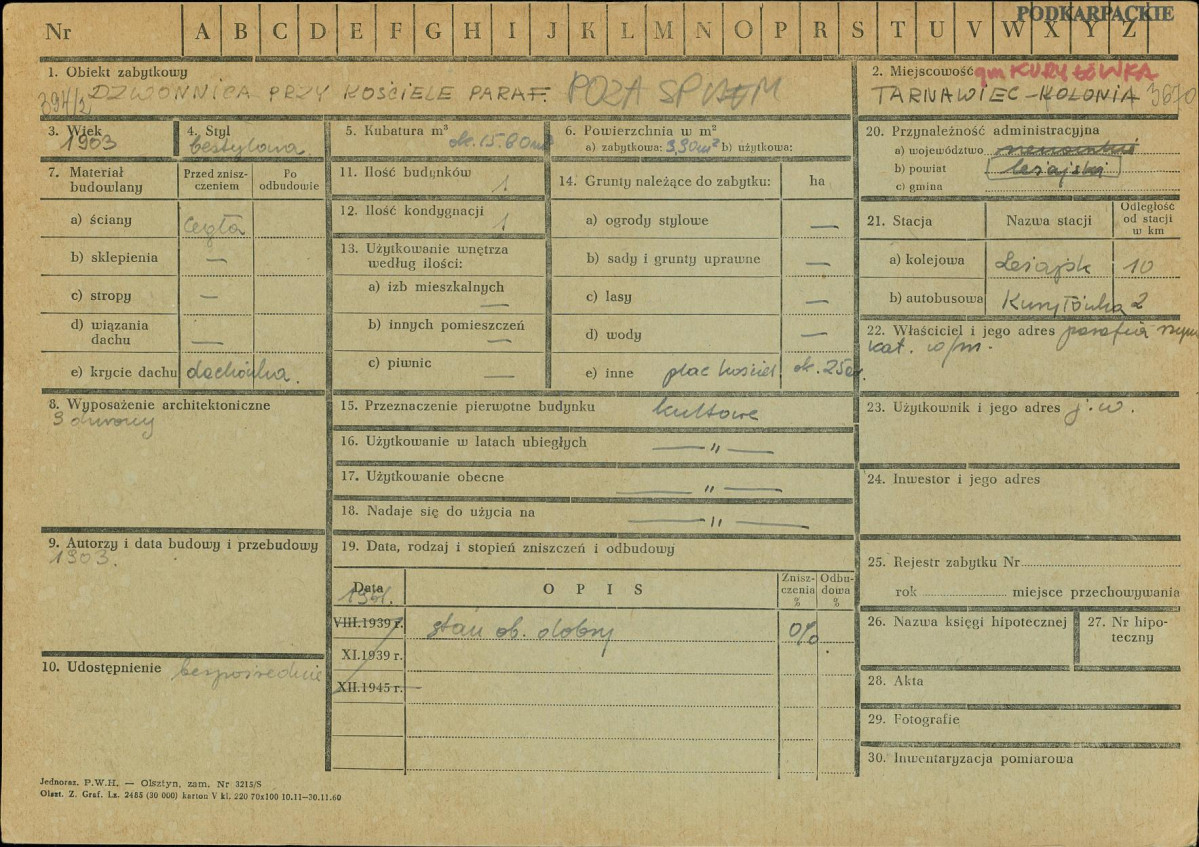 PODKARPACKIE
Nr A B C D E F G H I J K L M N O P R S T U V W X Y Z
1. Obiekt zabytkowy
394/2 DZWONNICA PRZY KOŚCIELE PARAF. POZA SPISEM
2. Miejscowość gm KURYŁÓWKA
TARNAWIEC-KOLONIA 3670
3. Wiek
1903
4. Styl
bestylowa.
5. Kubatura m³
ok. 15.80 m³
6. Powierzchnia w m²
a) zabytkowa: 3,30 m² b) użytkowa:
7. Materiał budowlany
Przed znisz-
czeniem
Po
odbudowie
a) ściany cegła
b) sklepienia —
c) stropy —
d) wiązania
dachu —
e) krycie dachu dachówka.
8. Wyposażenie architektoniczne
3 dzwony
9. Autorzy i data budowy i przebudowy
1903.
10. Udostępnienie bezpośrednie
11. Ilość budynków 1
12. Ilość kondygnacji 1
13. Użytkowanie wnętrza
według ilości:
a) izb mieszkalnych —
b) innych pomieszczeń —
c) piwnic —
14. Grunty należące do zabytku: ha
a) ogrody stylowe —
b) sady i grunty uprawne —
c) lasy —
d) wody —
e) inne plac kościel ok. 25a.
15. Przeznaczenie pierwotne budynku kultowe
16. Użytkowanie w latach ubiegłych — „ —
17. Użytkowanie obecne — „ —
18. Nadaje się do użycia na — „ —
19. Data, rodzaj i stopień zniszczeń i odbudowy
Data O P I S Znisz-
czenia
% Odbu-
dowa
%
VIII.1939 r. stan ob. dobry 0%
XI.1939 r.
XII.1945 r.
20. Przynależność administracyjna
a) województwo
b) powiat leżajski
c) gmina
21. Stacja Nazwa stacji Odległość
od stacji
w km
a) kolejowa Leżajsk 10
b) autobusowa Kuryłówka 2
22. Właściciel i jego adres parafia rzym
kat. w/m.
23. Użytkownik i jego adres j.w.
24. Inwestor i jego adres
25. Rejestr zabytku Nr
rok miejsce przechowywania
26. Nazwa księgi hipotecznej
27. Nr hipo-
teczny
28. Akta
29. Fotografie
30. Inwentaryzacja pomiarowa
Jednoraz. P.W.H. — Olsztyn, zam. Nr 3215/S
Olszt. Z. Graf. Lz. 2485 (30 000) karton V kl. 220 70x100 10.11—30.11.60